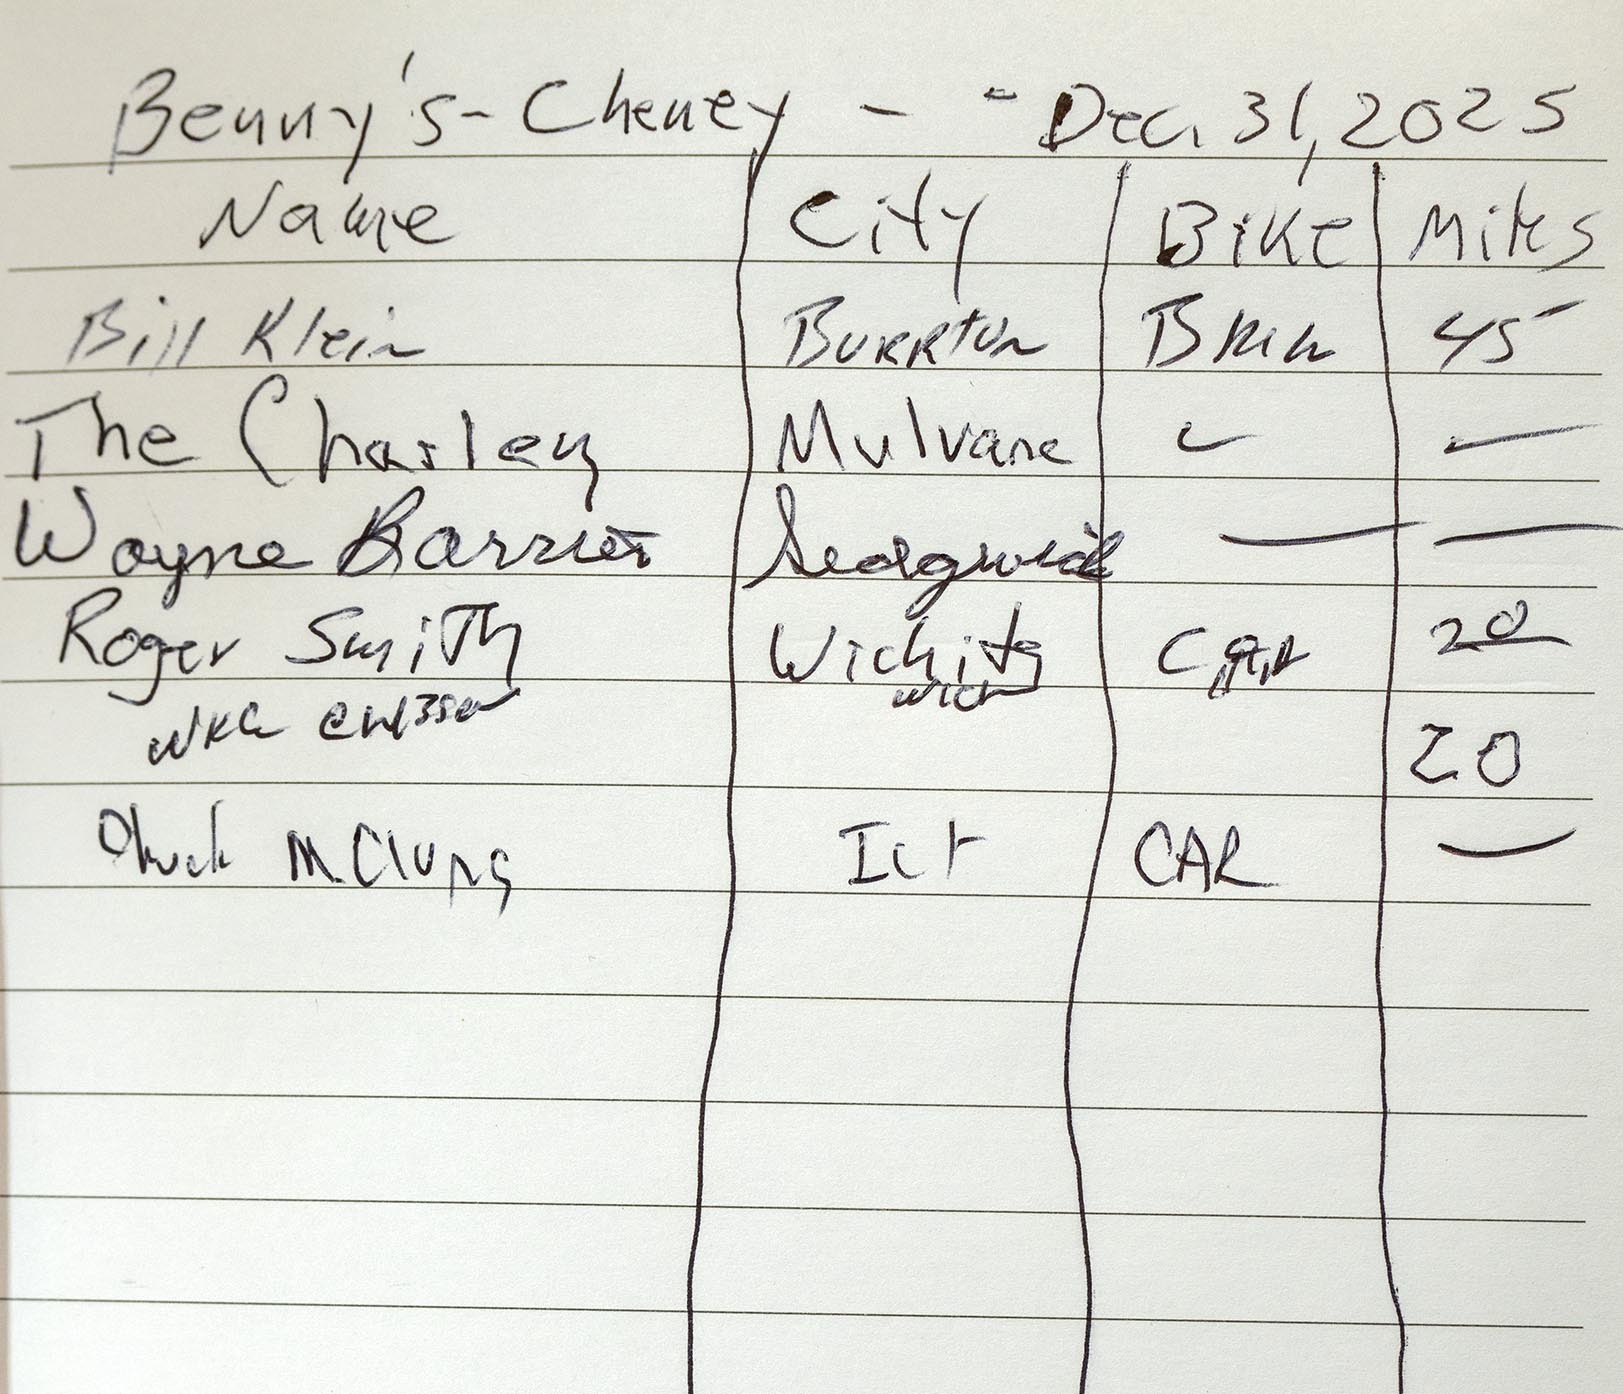 Benny's - Cheney - - Dec. 31, 2025
Name City Bike Miles
Bill Klein Burrton 45
The Charley Mulvane — —
Wayne Barrier Sedgwick — —
Roger Smith Wichita Car 20
Wich 20
Chuck McClung Ict CAR —